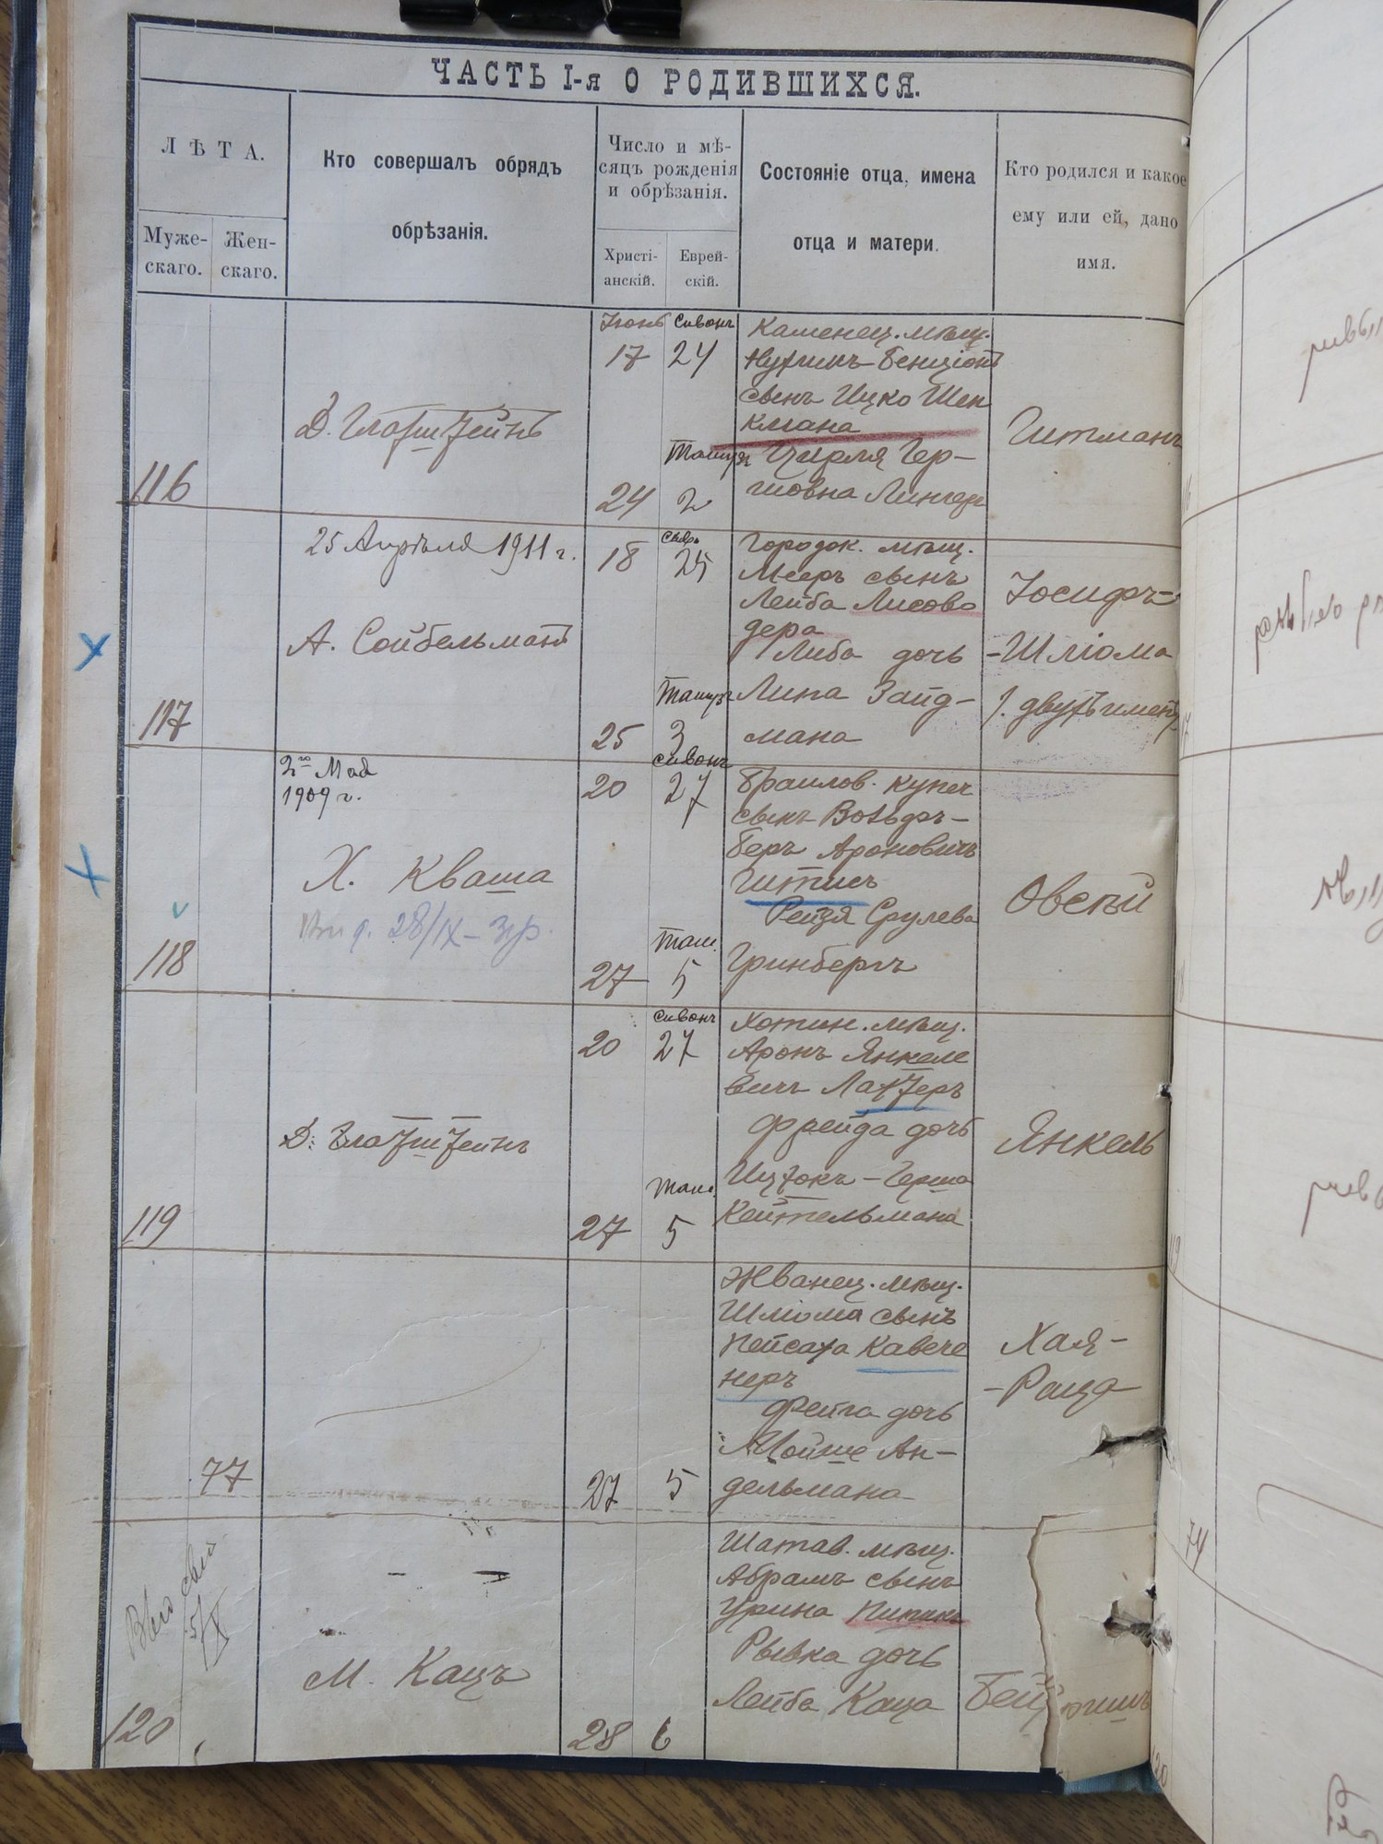 ЧАСТЬ I-я О РОДИВШИХСЯ.
ЛѢТА.
Муже-
скаго.
Жен-
скаго.
Кто совершалъ обрядъ
обрѣзанія.
Число и мѣ-
сяцъ рожденія
и обрѣзанія.
Христі-
анскій.
Еврей-
скій.
Состояніе отца, имена
отца и матери.
Кто родился и какое
ему или ей, дано
имя.
116
Д. Глатштейнъ
Іюнь Сивонъ
17 24
24 2
Каменец. мѣщ.
Нухимъ-Бенціонъ
сынъ Ицко Шен
кмана
Цирля Гер-
шовна
Гитманъ
117
25 Апрѣля 1911 г.
А. Сойбельманъ
18 25
Тамузъ
25 3
Городок. мѣщ.
Мееръ сынъ
Лейба Лисово
дера
Либа дочь
Липа Зайд-
мана
Іосифъ-
-Шліома
двухъ именъ
118
2го Мая
1909 г.
Х. Кваша
28/IX
Сивонъ
20 27
Там.
27 5
Браилов. купеч
сынъ Вольфъ-
Беръ Ароновичъ
Гитисъ
Рейзя Срулева
Гринбергъ
Овсѣй
119
Д. Глатштейнъ
Сивонъ
20 27
Там.
27 5
Хотин. мѣщ.
Аронъ Янкеле
вичъ Лахтеръ
Фрейда дочь
Ицхокъ-Герша
Кейтельмана
Янкель
77
27 5
Жванец. мѣщ.
Шліома сынъ
Пейсаха Кавече
неръ
Фейга дочь
Мойше Ан-
дельмана
Хая-
-Раца
120
М. Кацъ
28 6
Шатав. мѣщ.
Абрамъ сынъ
Урина Пипикъ
Рывка дочь
Лейба Каца